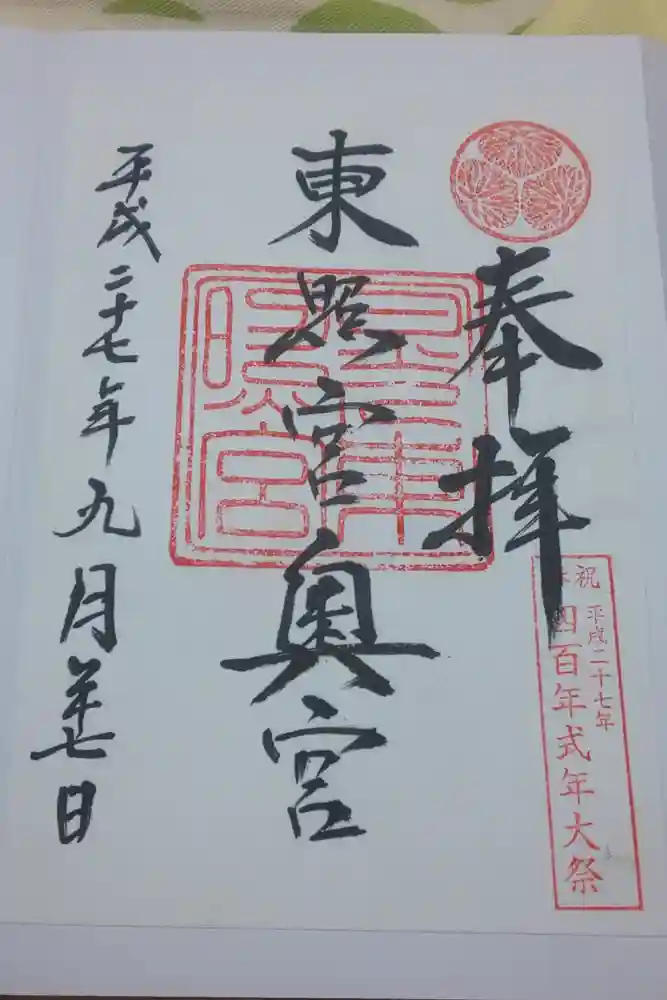 奉拝
奉祝
平成二十七年
四百年式年大祭
東照宮奥宮
平成二十七年九月廿七日